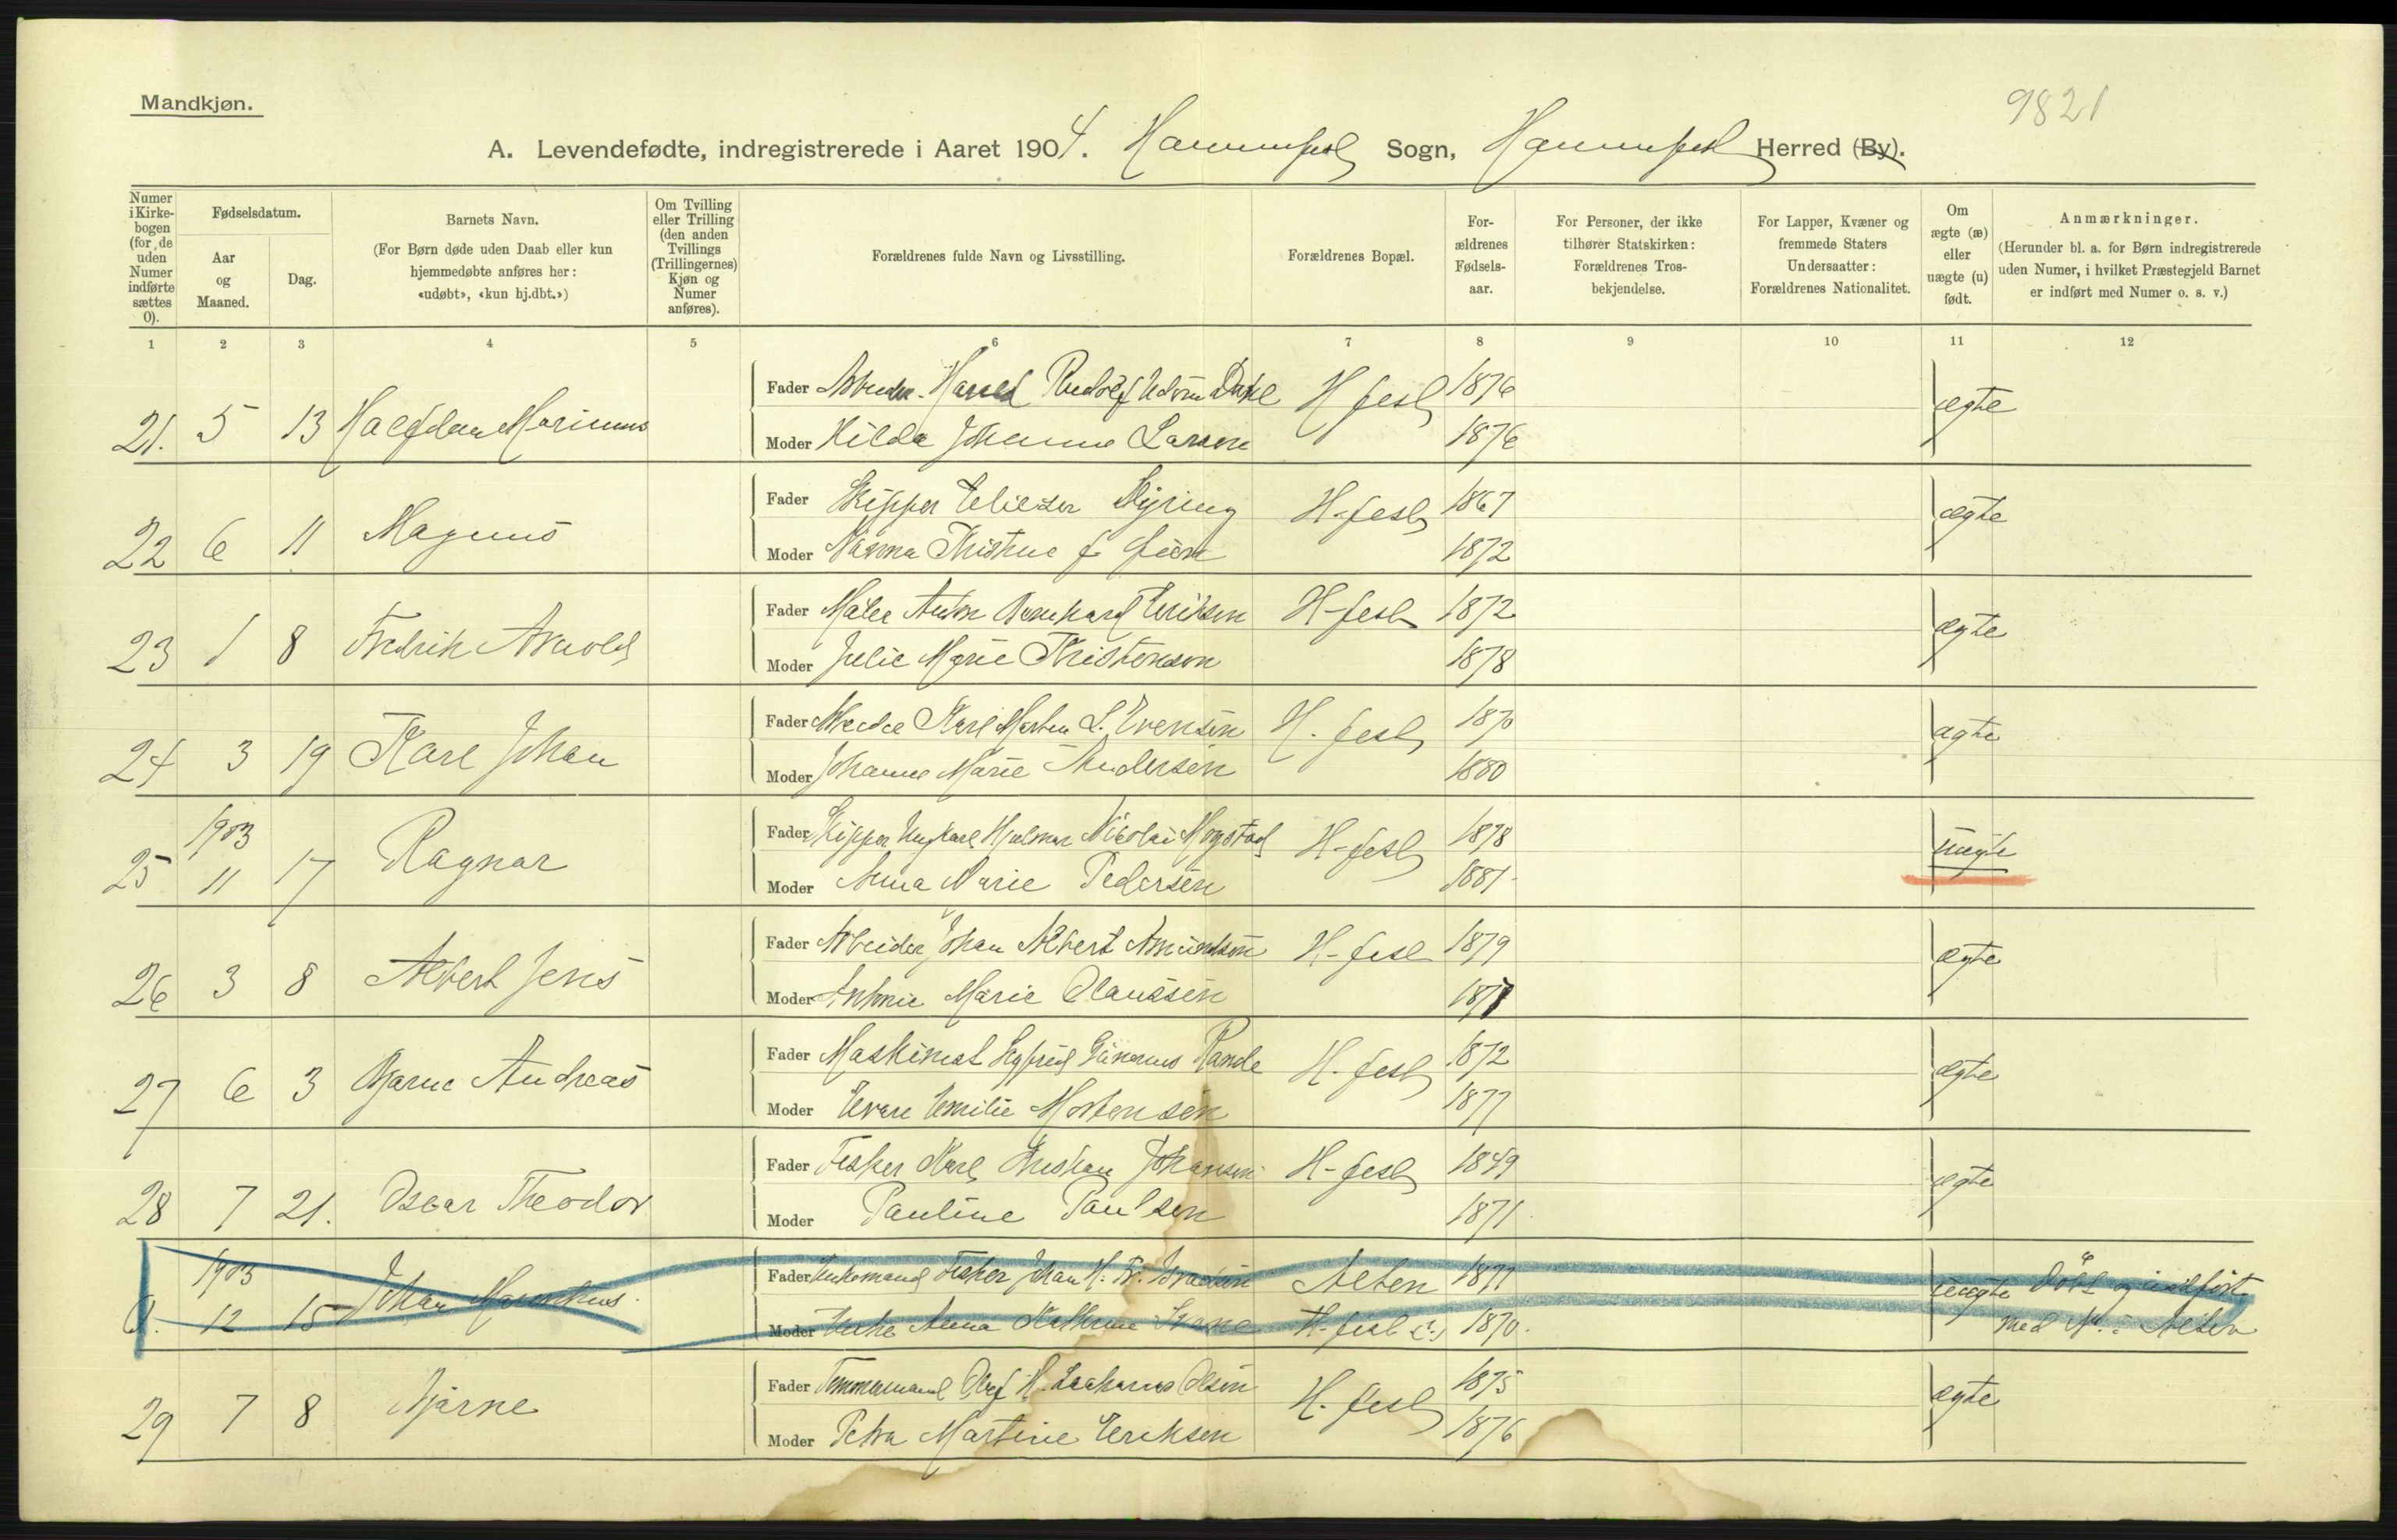 9821
Mandkjøn.
A. Levendefødte, indregistrerede i Aaret 1904. Hammerfest Sogn, Hammerfest Herred (By).
Numer i Kirkebogen (for de uden Numer indførte sættes 0).
Fødselsdatum.
Aar og Maaned.
Dag.
Barnets Navn.
(For Børn døde uden Daab eller kun hjemmedøbte anføres her: «udøbt», «kun hj.dbt.»)
Om Tvilling eller Trilling (den anden Tvillings (Trillingernes) Kjøn og Numer anføres).
Forældrenes fulde Navn og Livsstilling.
Forældrenes Bopæl.
For-ældrenes Fødsels-aar.
For Personer, der ikke tilhører Statskirken: Forældrenes Tros-bekjendelse.
For Lapper, Kvæner og fremmede Staters Undersaatter: Forældrenes Nationalitet.
Om ægte (æ) eller uægte (u) født.
Anmærkninger.
(Herunder bl. a. for Børn indregistrerede uden Numer, i hvilket Præstegjeld Barnet er indført med Numer o. s. v.)
1 2 3 4 5 6 7 8 9 10 11 12
21. 5 13 Halfdan Marinus Fader Arbeider Harald Rudolf Dahl H fest 1876 ægte
Moder Hilda Johanne Larsen 1876
22 6 11 Magnus Fader Skipper Elieser Myring H-fest 1867 ægte
Moder Kristine f 1872
23 1 8 Fredrik Arnold Fader Maler Anton Bernhard Eriksen H-fest 1872 ægte
Moder Julie Marie Kristensen 1878
24 3 19 Karl Johan Fader Arbeider Karl Morten L. Evensen H. fest 1870 ægte
Moder Johanne Marie Andersen 1880
25 1903 11 17 Ragnar Fader Skipper Ungkarl Hjalmar Nikolai Mogstad H-fest 1878 uægte
Moder Anna Marie Pedersen 1881
26 3 8 Albert Jens Fader Arbeider Johan Albert Amundsen H-fest 1879 ægte
Moder Antonie Marie Olaussen
27 6 3 Bjarne Andreas Fader Maskinist Sigfrid Rande H. fest 1872 ægte
Moder Emilie Mortensen 1877
28 7 21. Oscar Theodor Fader Fisker Karl Kristian Johansen H-fest 1849 ægte
Moder Pauline Paulsen 1871
0. 1903 12 15 Johan Fader Enkemand Fisker Johan H. Fr. Alten 1877 uægte Døbt og indført
Moder Enke Anna Kathrine H-fest (?) 1870. med N. i Alten
29 7 8 Bjarne Fader Tømmermand Olaf H. Zacharias Olsen H. fest 1875 ægte
Moder Petra Martine Eriksen 1876